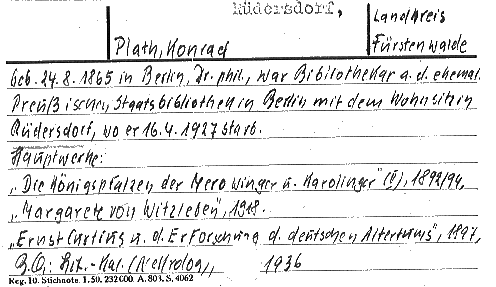 Rüdersdorf,
Landkreis
Plath, Konrad
Fürstenwalde
Geb. 24.8.1865 in Berlin, Dr. phil., war Bibliothekar a. d. ehemal.
Preußischen Staatsbibliothek in Berlin mit dem Wohnsitz in
Rüdersdorf, wo er 16.4.1927 starb.
Hauptwerke:
„Die Königspfalzen der Merowinger u. Karolinger" (I), 1892/94,
„Margarete von Witzleben", 1918.
„Ernst Curtius u. d. Erforschung d. deutschen Altertums", 1897,
B.Q: Lit.-Kal. (Nekrolog), 1936
Reg. 10. Stichnote. 1. 50. 232000. A. 803. S. 4062